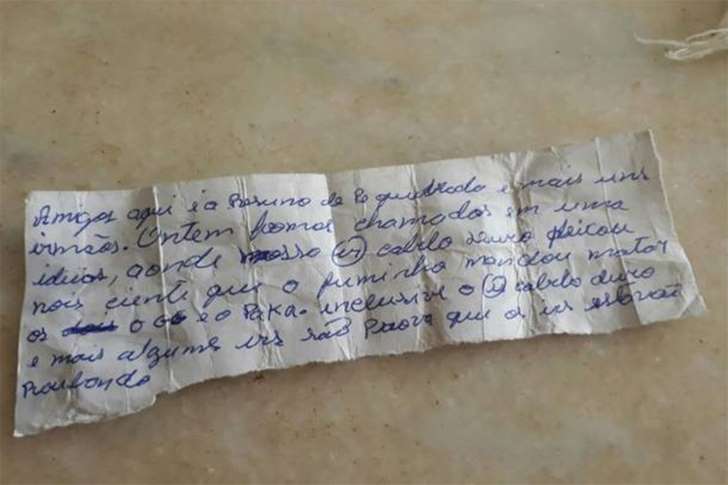 Amigos aqui é o Resumo de Po quebrado e mais uns
irmãos. Ontem fomos chamados em uma
ideias, aonde nosso (ir) cabelo duro deicou
nois ciente que o fuminho mandou matar
os o GG e o Paka. inclusive o (ir) cabelo duro
e mais algums irs são Prova que os irs estavão
Roubando